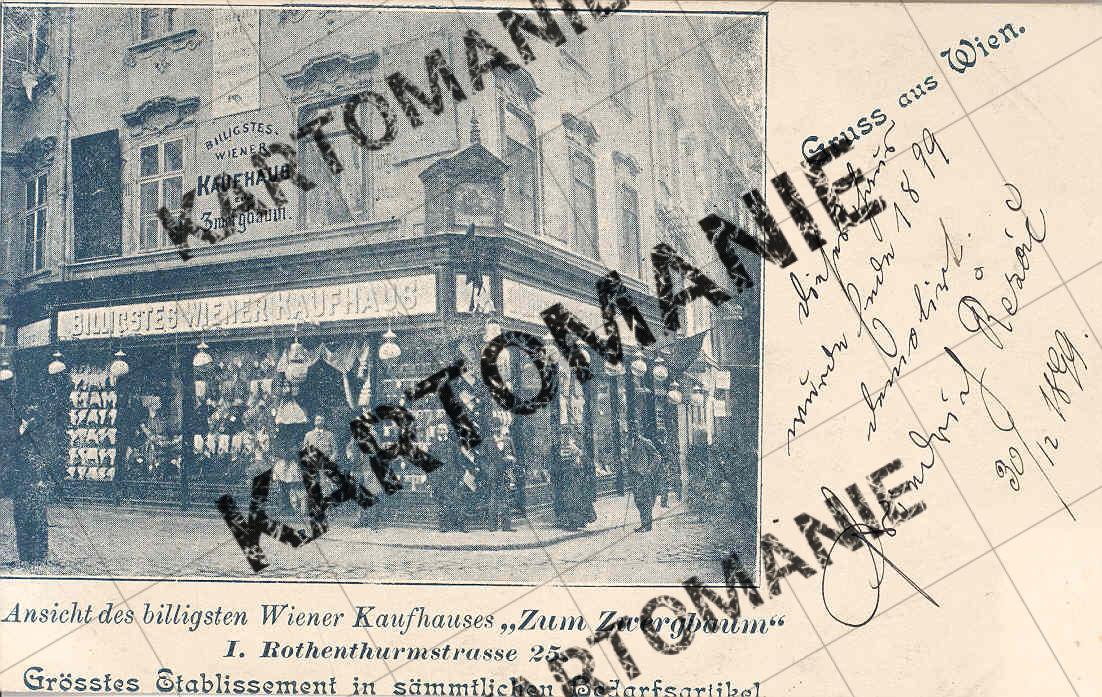 BILLIGSTES
WIENER
KAUFHAUS
zum
Zwergbaum.
BILLIGSTES WIENER KAUFHAUS
Gruss aus Wien.
Dieses Haus
wurde Ende 1899
demolirt.
30/12 1899.
Ansicht des billigsten Wiener Kaufhauses „Zum Zwergbaum“
I. Rothenthurmstrasse 25.
Grösstes Etablissement in sämmtlichen Bedarfsartikel
KARTOMANIE
KARTOMANIE
KARTOMANIE
KARTOMANIE